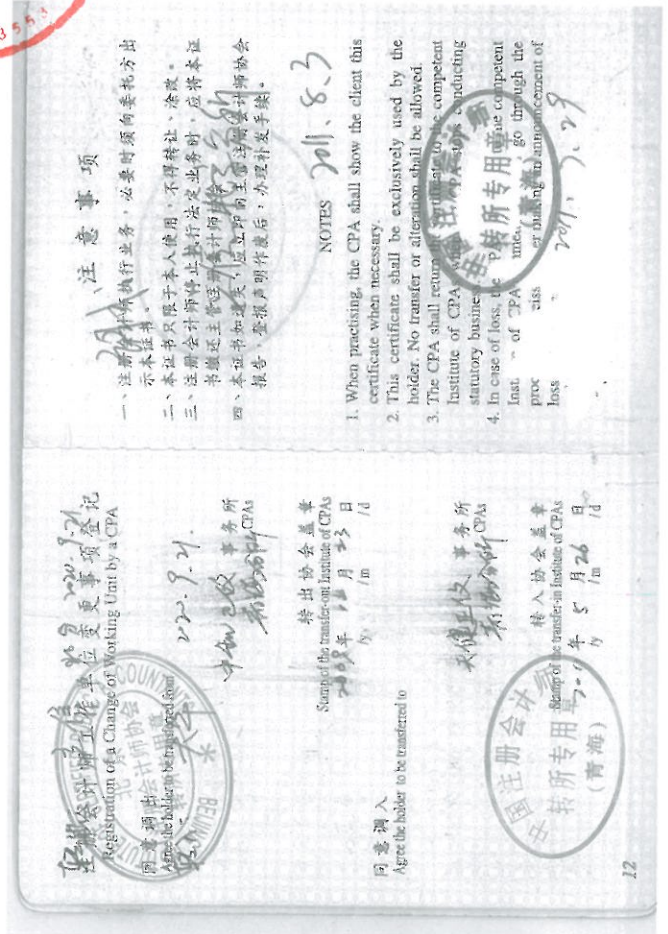 注册会计师工作单位变更事项登记
Registration of a Change of Working Unit by a CPA
2020.9.21
同意调出
Agree the holder to be transferred from
2020.9.21.
事务所
CPAs
转出协会盖章
Stamp of the transfer-out Institute of CPAs
年 月 23 日
/y /m /d
同意调入
Agree the holder to be transferred to
事务所
CPAs
转入协会盖章
Stamp of the transfer-in Institute of CPAs
年 5 月 26 日
/y /m /d
中国注册会计师
转所专用章
(青海)
12
注意事项
一、注册会计师执行业务,必要时须向委托方出
示本证书。
二、本证书只限于本人使用,不得转让、涂改。
三、注册会计师停止执行法定业务时,应将本证
书缴还主管注册会计师协会。
四、本证书如遗失,应立即向主管注册会计师协会
报告,登报声明作废后,办理补发手续。
NOTES
2011.8.3
1. When practising, the CPA shall show the client this
certificate when necessary.
2. This certificate shall be exclusively used by the
holder. No transfer or alteration shall be allowed.
3. The CPA shall return certificate to the competent
Institute of CPA when CPA stops conducting
statutory busines
4. In case of loss, the P the competent
Inst of CPA imme go through the
proc eiss er making an announcement of
loss
转所专用章
(青海)
3553